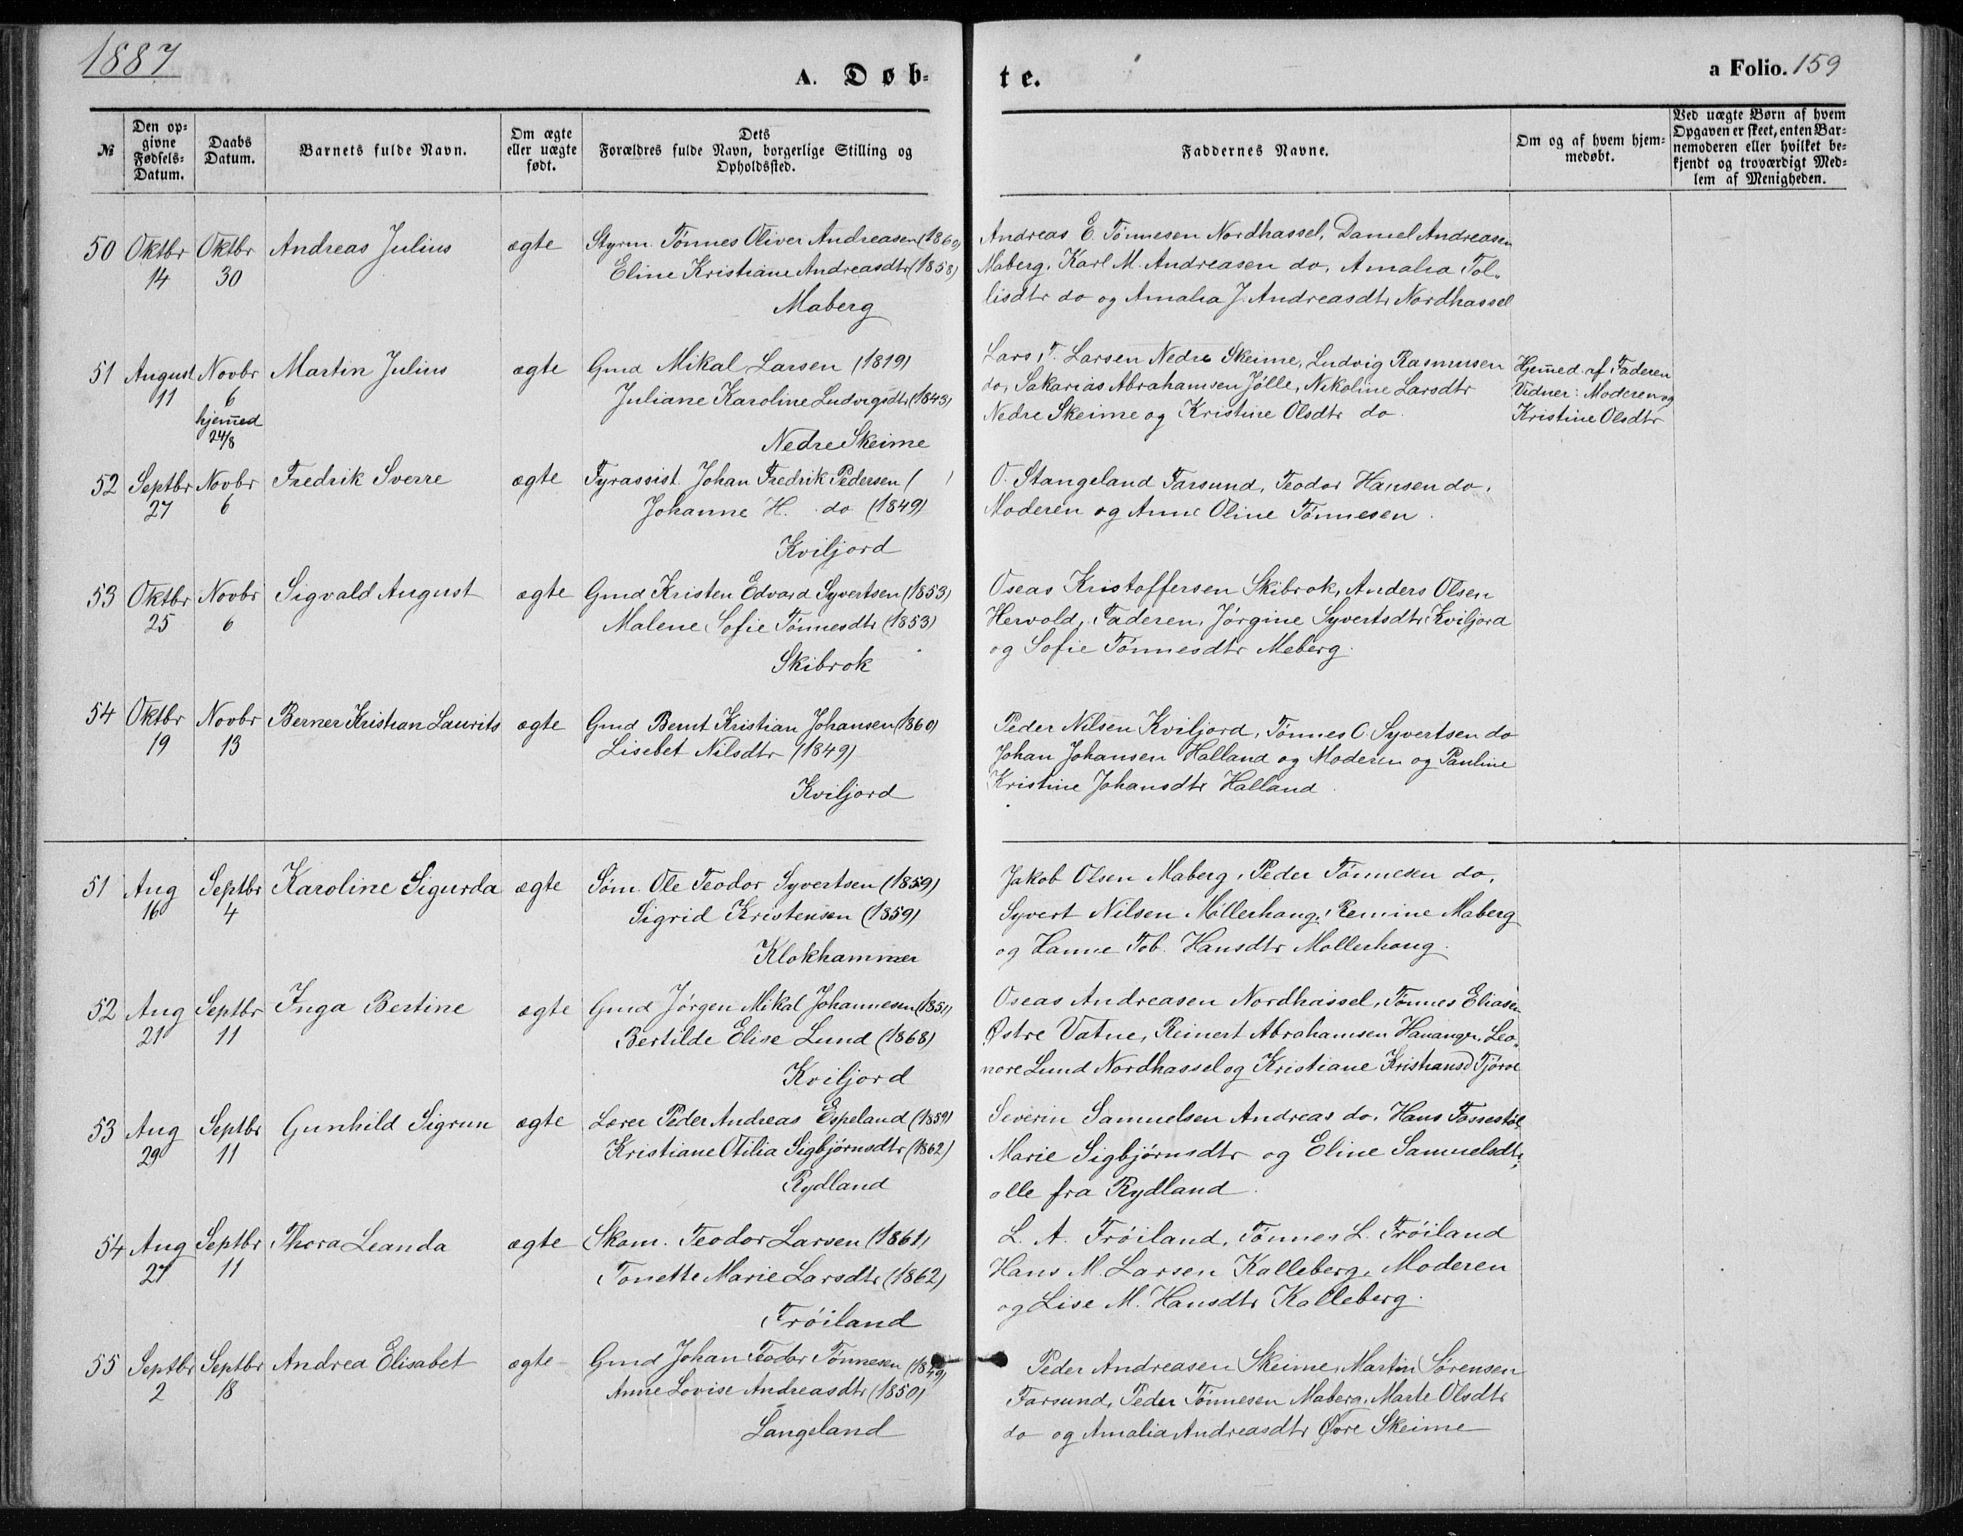 1887
A. Døb- te.
a Folio. 159
№
Den op-
givne
Fødsels-
Datum.
Daabs
Datum.
Barnets fulde Navn.
Om ægte
eller uægte
født.
Dets
Forældres fulde Navn, borgerlige Stilling og
Opholdssted.
Faddernes Navne.
Om og af hvem hjem-
medøbt.
Ved uægte Børn af hvem
Opgaven er skeet, enten Bar-
nemoderen eller hvilket be-
kjendt og troværdigt Med-
lem af Menigheden.
50 Oktbr Oktbr Andreas Julius ægte Styrm. Tønnes Oliver Andreasen (1860)
14 30 Eline Kristiane Andreasdtr (1858)
Maberg
Andreas E. Tønnesen Nordhassel, Daniel Andreasen
Maberg, Karl M. Andreasen do, Amalia Tol-
lisdtr do og Amalia J. Andreasdtr Nordhassel
51 August Novbr Martin Julius ægte Gmd Mikal Larsen (1819)
11 6 Juliane Karoline Ludvigsdtr (1843)
hjemed
24/8
Nedre Skeime
Lars T. Larsen Nedre Skeime, Ludvig Rasmusen
do, Sakarias Abrahamsen Jølle, Nikoline Larsdtr
Nedre Skeime og Kristine Olsdtr do.
Hjemed. af Faderen
Vidner: Moderen og
Kristine Olsdtr
52 Septbr Novbr Fredrik Sverre ægte Fyrassist. Johan Fredrik Pedersen ( )
27 6 Johanne H. do (1849)
Kviljord
O. Stangeland Farsund, Teodor Hansen do,
Moderen og Anne Oline Tønnesen.
53 Oktbr Novbr Sigvald August ægte Gmd Kristen Edvard Syvertsen (1853)
25 6 Malene Sofie Tønnesdtr (1853)
Skibrok
Oseas Kristoffersen Skibrok, Anders Olsen
Hervold, Faderen, Jørgine Syvertsdtr Kviljord
og Sofie Tønnesdtr Meberg.
54 Oktbr Novbr Berner Kristian Laurits ægte Gmd Bernt Kristian Johansen (1860)
19 13 Lisebet Nilsdtr (1849)
Kviljord
Peder Nilsen Kviljord, Tønnes O. Syvertsen do
Johan Johansen Halland og Moderen og Pauline
Kristine Johansdtr Halland.
51 Aug Septbr Karoline Sigurda ægte Søm. Ole Teodor Syvertsen (1859)
16 4 Sigrid Kristensen (1859)
Klokhammer
Jakob Olsen Maberg, Peder Tønnesen do,
Syvert Nilsen Møllerhaug, Remine Maberg
og Hanne Tob. Hansdtr Møllerhaug.
52 Aug Septbr Inga Bertine ægte Gmd Jørgen Mikal Johannesen (1851)
21 11 Bertilde Elise Lund (1868)
Kviljord
Oseas Andreasen Nordhassel, Tønnes Eliasen
Østre Vatne, Reinert Abrahamsen Hananger, Leo-
nore Lund Nordhassel og Kristiane Kristiansd Tjørve
53 Aug Septbr Gunhild Sigrun ægte Lærer Peder Andreas Espeland (1859)
29 11 Kristiane Otilia Sigbjørnsdtr (1862)
Rydland
Severin Samuelsen Andreas do, Hans Fossestøl
Marie Sigbjørnsdtr og Eline Samuelsdtr,
alle fra Rydland.
54 Aug Septbr Thora Leanda ægte Skom. Teodor Larsen (1861)
27 11 Tonette Marie Larsdtr (1862)
Frøiland
L. A. Frøiland, Tønnes L. Frøiland
Hans M. Larsen Kalleberg, Moderen
og Lise M. Hansdtr Kalleberg.
55 Septbr Septbr Andrea Elisabet ægte Gmd Johan Teodor Tønnesen (1849)
2 18 Anne Lovise Andreasdtr (1850)
Langeland
Peder Andreasen Skeime, Martin Sørensen
Farsund, Peder Tønnesen Maberg, Marte Olsdtr
do og Amalia Andreasdtr Øvre Skeime